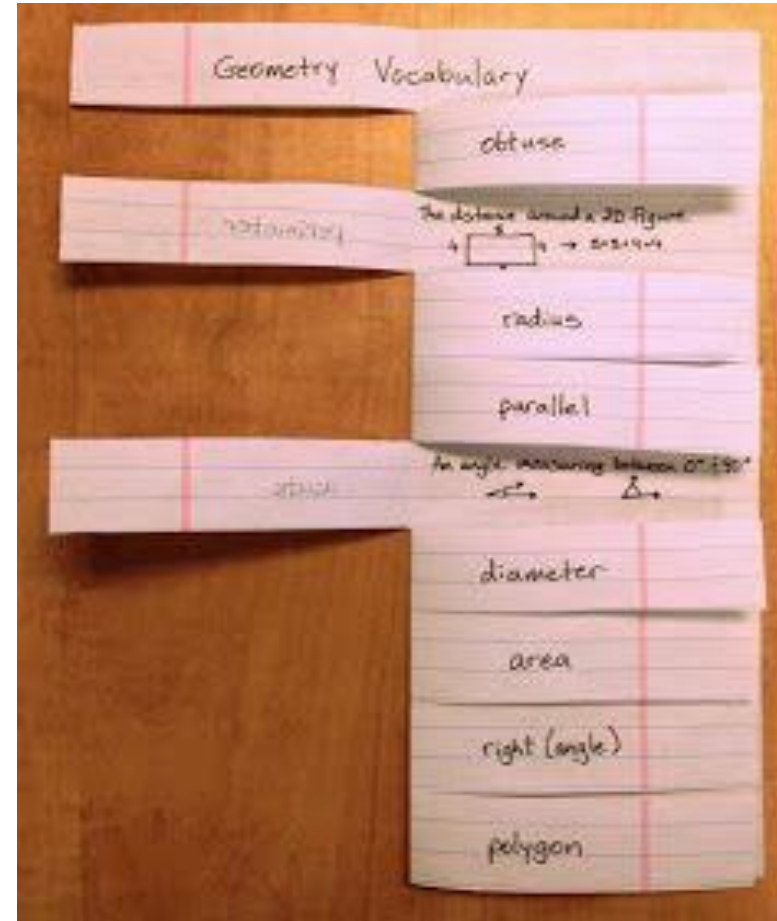 Geometry Vocabulary
obtuse
perimeter
The distance around a 2D Figure.
5
4 4 → 5+5+4+4
radius
parallel
acute
An angle measuring between 0° & 90°
diameter
area
right (angle)
polygon